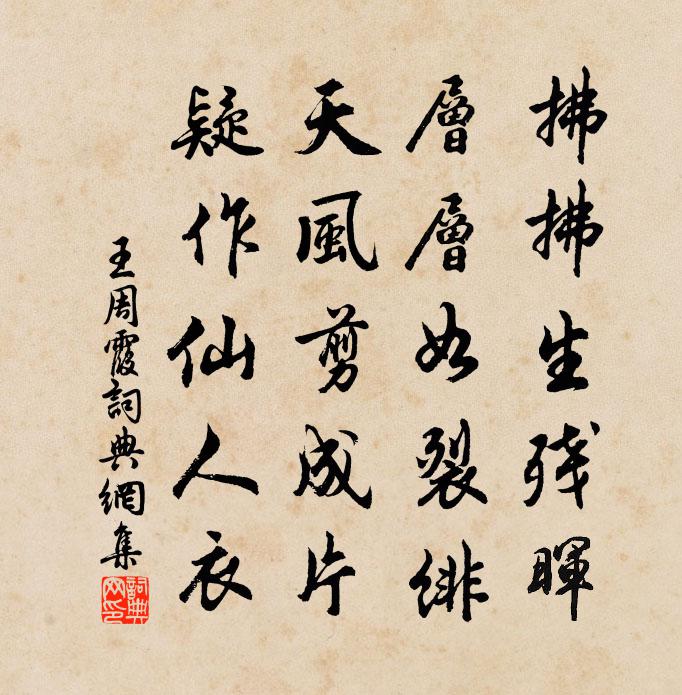 拂拂生残暉
層層如裂緋
天風剪成片
疑作仙人衣
王周霞詞典網集
詞典
网印